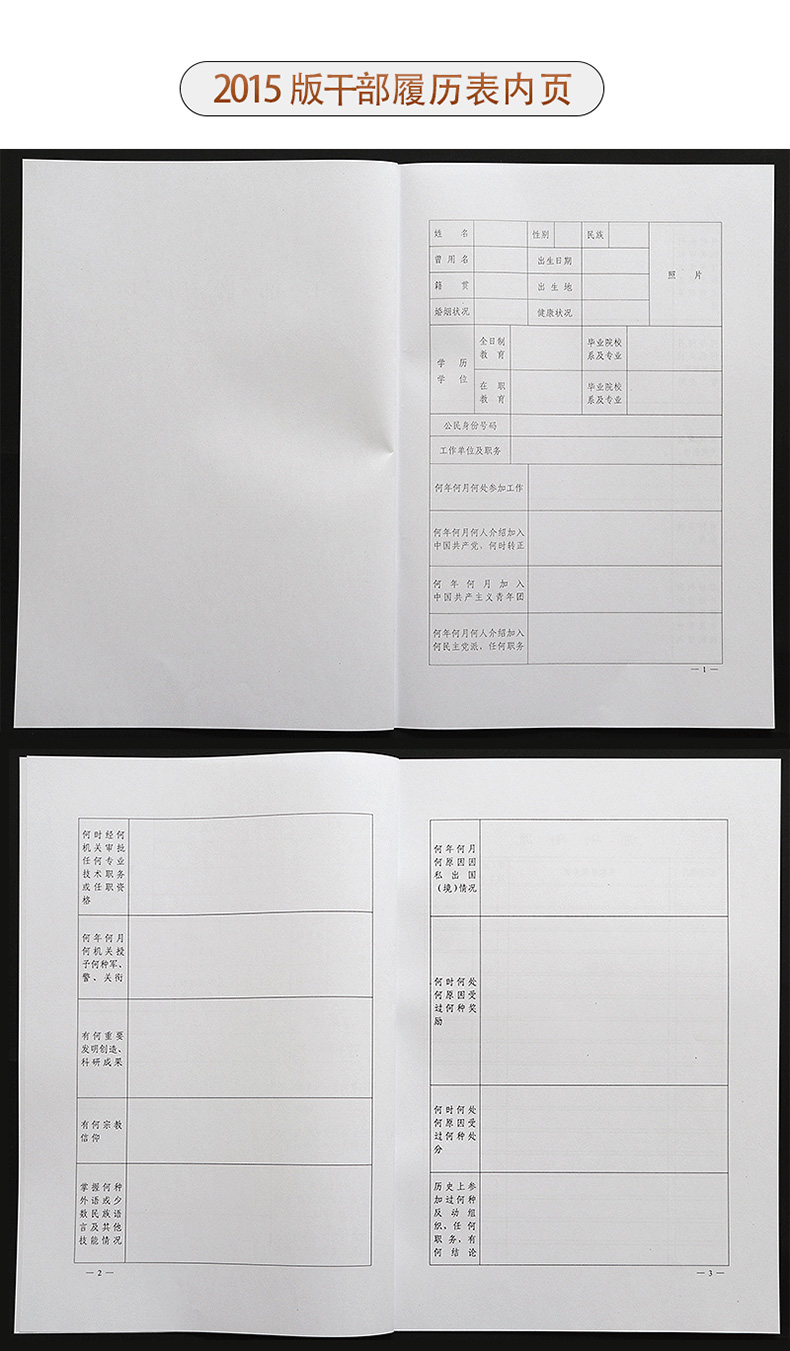 2015版干部履历表内页
姓 名 性别 民族
照 片
曾用名 出生日期
籍 贯 出生地
婚姻状况 健康状况
学 历
学 位
全日制
教 育
毕业院校
系及专业
在 职
教 育
毕业院校
系及专业
公民身份号码
工作单位及职务
何年何月何处参加工作
何年何月何人介绍加入
中国共产党，何时转正
何年何月加入
中国共产主义青年团
何年何月何人介绍加入
何民主党派，任何职务
— 1 —
何时经何
机关审批
任何专业
技术职务
或任职资
格
何年何月
何机关授
予何种军、
警、关衔
有何重要
发明创造、
科研成果
有何宗教
信仰
掌握何种
外语或少
数民族语
言及其他
技能情况
— 2 —
何年何月
何原因因
私出国
（境）情况
何时何处
何原因受
过何种奖
励
何时何处
何原因受
过何种处
分
历史上参
加过何种
反动组
织、任何
职务，有
何结论
— 3 —